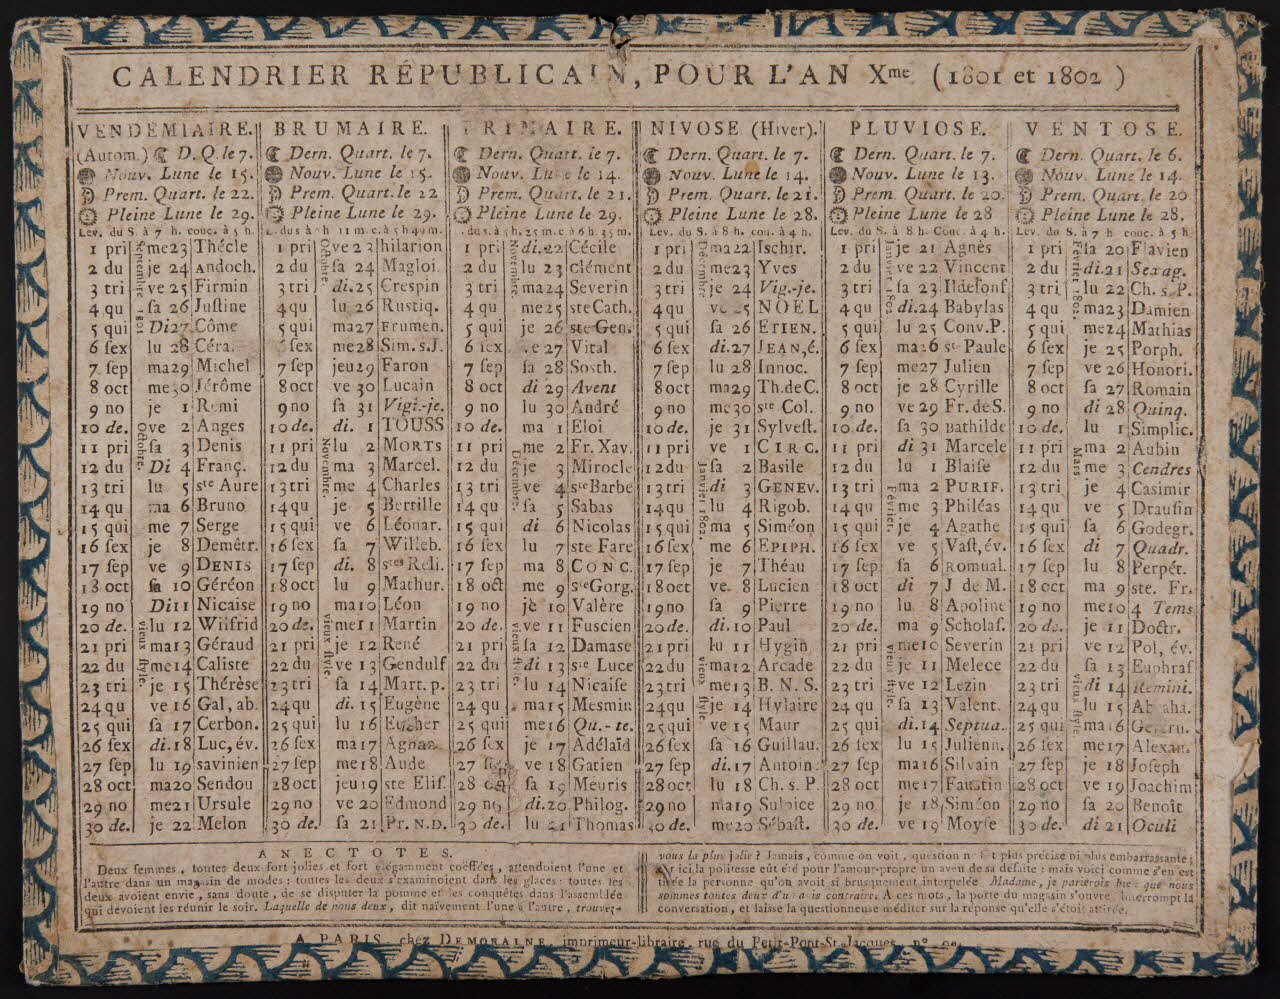 CALENDRIER RÉPUBLICAIN, POUR L'AN Xme (1801 et 1802)
VENDEMIAIRE.
(Autom.) D. Q. le 7.
Nouv. Lune le 15.
Prem. Quart. le 22.
Pleine Lune le 29.
Lev. du S. à 7 h. couc. à 5 h.
Septembre 1801
Octobre.
vieux style.
1 pri me 23 Thécle
2 du je 24 Andoch.
3 tri ve 25 Firmin
4 qu sa 26 Justine
5 qui Di 27 Côme
6 sex lu 28 Céra.
7 sep ma 29 Michel
8 oct me 30 Jérôme
9 no je 1 Remi
10 de. ve 2 Anges
11 pri sa 3 Denis
12 du Di 4 Franç.
13 tri lu 5 ste Aure
14 qu ma 6 Bruno
15 qui me 7 Serge
16 sex je 8 Demêtr.
17 sep ve 9 DENIS
18 oct sa 10 Géréon
19 no Di 11 Nicaise
20 de. lu 12 Wilfrid
21 pri ma 13 Géraud
22 du me 14 Caliste
23 tri je 15 Thérèse
24 qu ve 16 Gal, ab.
25 qui sa 17 Cerbon.
26 sex di. 18 Luc, év.
27 sep lu 19 savinien
28 oct ma 20 Sendou
29 no me 21 Ursule
30 de. je 22 Melon
BRUMAIRE.
Dern. Quart. le 7.
Nouv. Lune le 15.
Prem. Quart. le 22
Pleine Lune le 29.
Octobre.
Novembre.
vieux style.
1 pri ve 23 hilarion
2 du sa 24 Magloi.
3 tri di. 25 Crespin
4 qu lu 26 Rustiq.
5 qui ma 27 Frumen.
6 sex me 28 Sim. s. J.
7 sep jeu 29 Faron
8 oct ve 30 Lucain
9 no sa 31 Vigi.-je.
10 de. di. 1 TOUSS
11 pri lu 2 MORTS
12 du ma 3 Marcel.
13 tri me 4 Charles
14 qu je 5 Bertille
15 qui ve 6 Léonar.
16 sex sa 7 Willeb.
17 sep di. 8 stes Reli.
18 oct lu 9 Mathur.
19 no ma 10 Léon
20 de. me 11 Martin
21 pri je 12 René
22 du ve 13 Gendulf
23 tri sa 14 Mart. p.
24 qu di. 15 Eugène
25 qui lu 16 Eucher
26 sex ma 17 Agnan
27 sep me 18 Aude
28 oct jeu 19 ste Elis.
29 no ve 20 Edmond
30 de. sa 21 Pr. N.D.
FRIMAIRE.
Dern. Quart. le 7.
Nouv. Lune le 14.
Prem. Quart. le 21.
Pleine Lune le 29.
Novembre.
Décembre.
vieux style.
1 pri di. 22 Cécile
2 du lu 23 Clément
3 tri ma 24 Severin
4 qu me 25 ste Cath.
5 qui je 26 ste Gen.
6 sex ve 27 Vital
7 sep sa 28 Sosth.
8 oct di 29 Avent
9 no lu 30 André
10 de. ma 1 Eloi
11 pri me 2 Fr. Xav.
12 du je 3 Mirocle
13 tri ve 4 ste Barbe
14 qu sa 5 Sabas
15 qui di 6 Nicolas
16 sex lu 7 ste Fare
17 sep ma 8 CONC.
18 oct me 9 ste Gorg.
19 no je 10 Valère
20 de. ve 11 Fuscien
21 pri sa 12 Damase
22 du di 13 ste Luce
23 tri lu 14 Nicaise
24 qu ma 15 Mesmin
25 qui me 16 Qu.-te.
26 sex je 17 Adélaïd
27 sep ve 18 Gatien
28 oct sa 19 Meuris
29 no di. 20 Philog.
30 de. lu 21 Thomas
NIVOSE (Hiver).
Dern. Quart. le 7.
Nouv. Lune le 14.
Prem. Quart. le 21.
Pleine Lune le 28.
Lev. du S. à 8 h. cou. à 4 h.
Décembre
Janvier 1802.
vieux style
1 pri ma 22 Ischir.
2 du me 23 Yves
3 tri je 24 Vig.-je.
4 qu ve 25 NOEL
5 qui sa 26 ETIEN.
6 sex di. 27 JEAN, é.
7 sep lu 28 Innoc.
8 oct ma 29 Th. de C.
9 no me 30 ste Col.
10 de. je 31 Sylvest.
11 pri ve 1 CIRC.
12 du sa 2 Basile
13 tri di 3 GENEV.
14 qu lu 4 Rigob.
15 qui ma 5 Siméon
16 sex me 6 EPIPH.
17 sep je 7 Théau
18 oct ve. 8 Lucien
19 no sa 9 Pierre
20 de. di. 10 Paul
21 pri lu 11 Hygin
22 du ma 12 Arcade
23 tri me 13 B. N. S.
24 qu je 14 Hylaire
25 qui ve 15 Maur
26 sex sa 16 Guillau.
27 sep di. 17 Antoin
28 oct lu 18 Ch. s. P.
29 no ma 19 Sulpice
30 de. me 20 Sébast.
PLUVIOSE.
Dern. Quart. le 7.
Nouv. Lune le 13.
Prem. Quart. le 20.
Pleine Lune le 28
Lev. du S. à 8 h. Couc. à 4 h.
Janvier 1802
Février.
vieux style.
1 pri je 21 Agnès
2 du ve 22 Vincent
3 tri sa 23 Ildefonf
4 qu di. 24 Babylas
5 qui lu 25 Conv. P.
6 sex ma 26 ste Paule
7 sep me 27 Julien
8 oct je 28 Cyrille
9 no ve 29 Fr. de S.
10 de. sa 30 Bathilde
11 pri di 31 Marcele
12 du lu 1 Blaise
13 tri ma 2 PURIF.
14 qu me 3 Philéas
15 qui je 4 Agathe
16 sex ve 5 Vast, év.
17 sep sa 6 Romual.
18 oct di 7 J de M.
19 no lu 8 Apoline
20 de. ma 9 Scholas.
21 pri me 10 Severin
22 du je 11 Melece
23 tri ve 12 Lezin
24 qu sa 13 Valent.
25 qui di. 14 Septua.
26 sex lu 15 Julienn.
27 sep ma 16 Silvain
28 oct me 17 Faustin
29 no je 18 Siméon
30 de. ve 19 Moyse
VENTOSE.
Dern. Quart. le 6.
Nouv. Lune le 14.
Prem. Quart. le 20
Pleine Lune le 28.
Lev. du S. à 7 h couc. à 5 h.
Février 1802.
Mars
vieux style
1 pri sa 20 Flavien
2 du di. 21 Sexag.
3 tri lu 22 Ch. s. P.
4 qu ma 23 Damien
5 qui me 24 Mathias
6 sex je 25 Porph.
7 sep ve 26 Honori.
8 oct sa 27 Romain
9 no di 28 Quinq.
10 de. lu 1 Simplic.
11 pri ma 2 Aubin
12 du me 3 Cendres
13 tri je 4 Casimir
14 qu ve 5 Drausin
15 qui sa 6 Godegr.
16 sex di 7 Quadr.
17 sep lu 8 Perpét.
18 oct ma 9 ste. Fr.
19 no me 10 4 Tems
20 de. je 11 Doctr.
21 pri ve 12 Pol, év.
22 du sa 13 Euphras
23 tri di 14 Remini.
24 qu lu 15 Abraha.
25 qui ma 16 Gertru.
26 sex me 17 Alexan.
27 sep je 18 Joseph
28 oct ve 19 Joachim
29 no sa 20 Benoît
30 de. di 21 Oculi
ANECTOTES.
Deux femmes, toutes deux fort jolies et fort élégamment coëffées, attendoient l'une et
l'autre dans un magasin de modes: toutes les deux s'examinoient dans les glaces: toutes les
deux avoient envie, sans doute, de se disputer la pomme et les conquêtes dans l'assemblée
qui devoient les réunir le soir. Laquelle de nous deux, dit naïvement l'une à l'autre, trouvez-
vous la plus jolie? Jamais, comme on voit, question ne fut plus précise ni plus embarrassante;
ici, la politesse eût été pour l'amour-propre un aveu de sa défaite: mais voici comme s'en est
tirée la personne qu'on avoit si brusquement interpelée Madame, je parierois bien que nous
sommes toutes deux d'un avis contraire. A ces mots, la porte du magasin s'ouvre, interrompt la
conversation, et laisse la questionneuse méditer sur la réponse qu'elle s'étoit attirée.
A PARIS, chez DEMORAINE, imprimeur-libraire, rue du Petit-Pont-St-Jacques, n°.